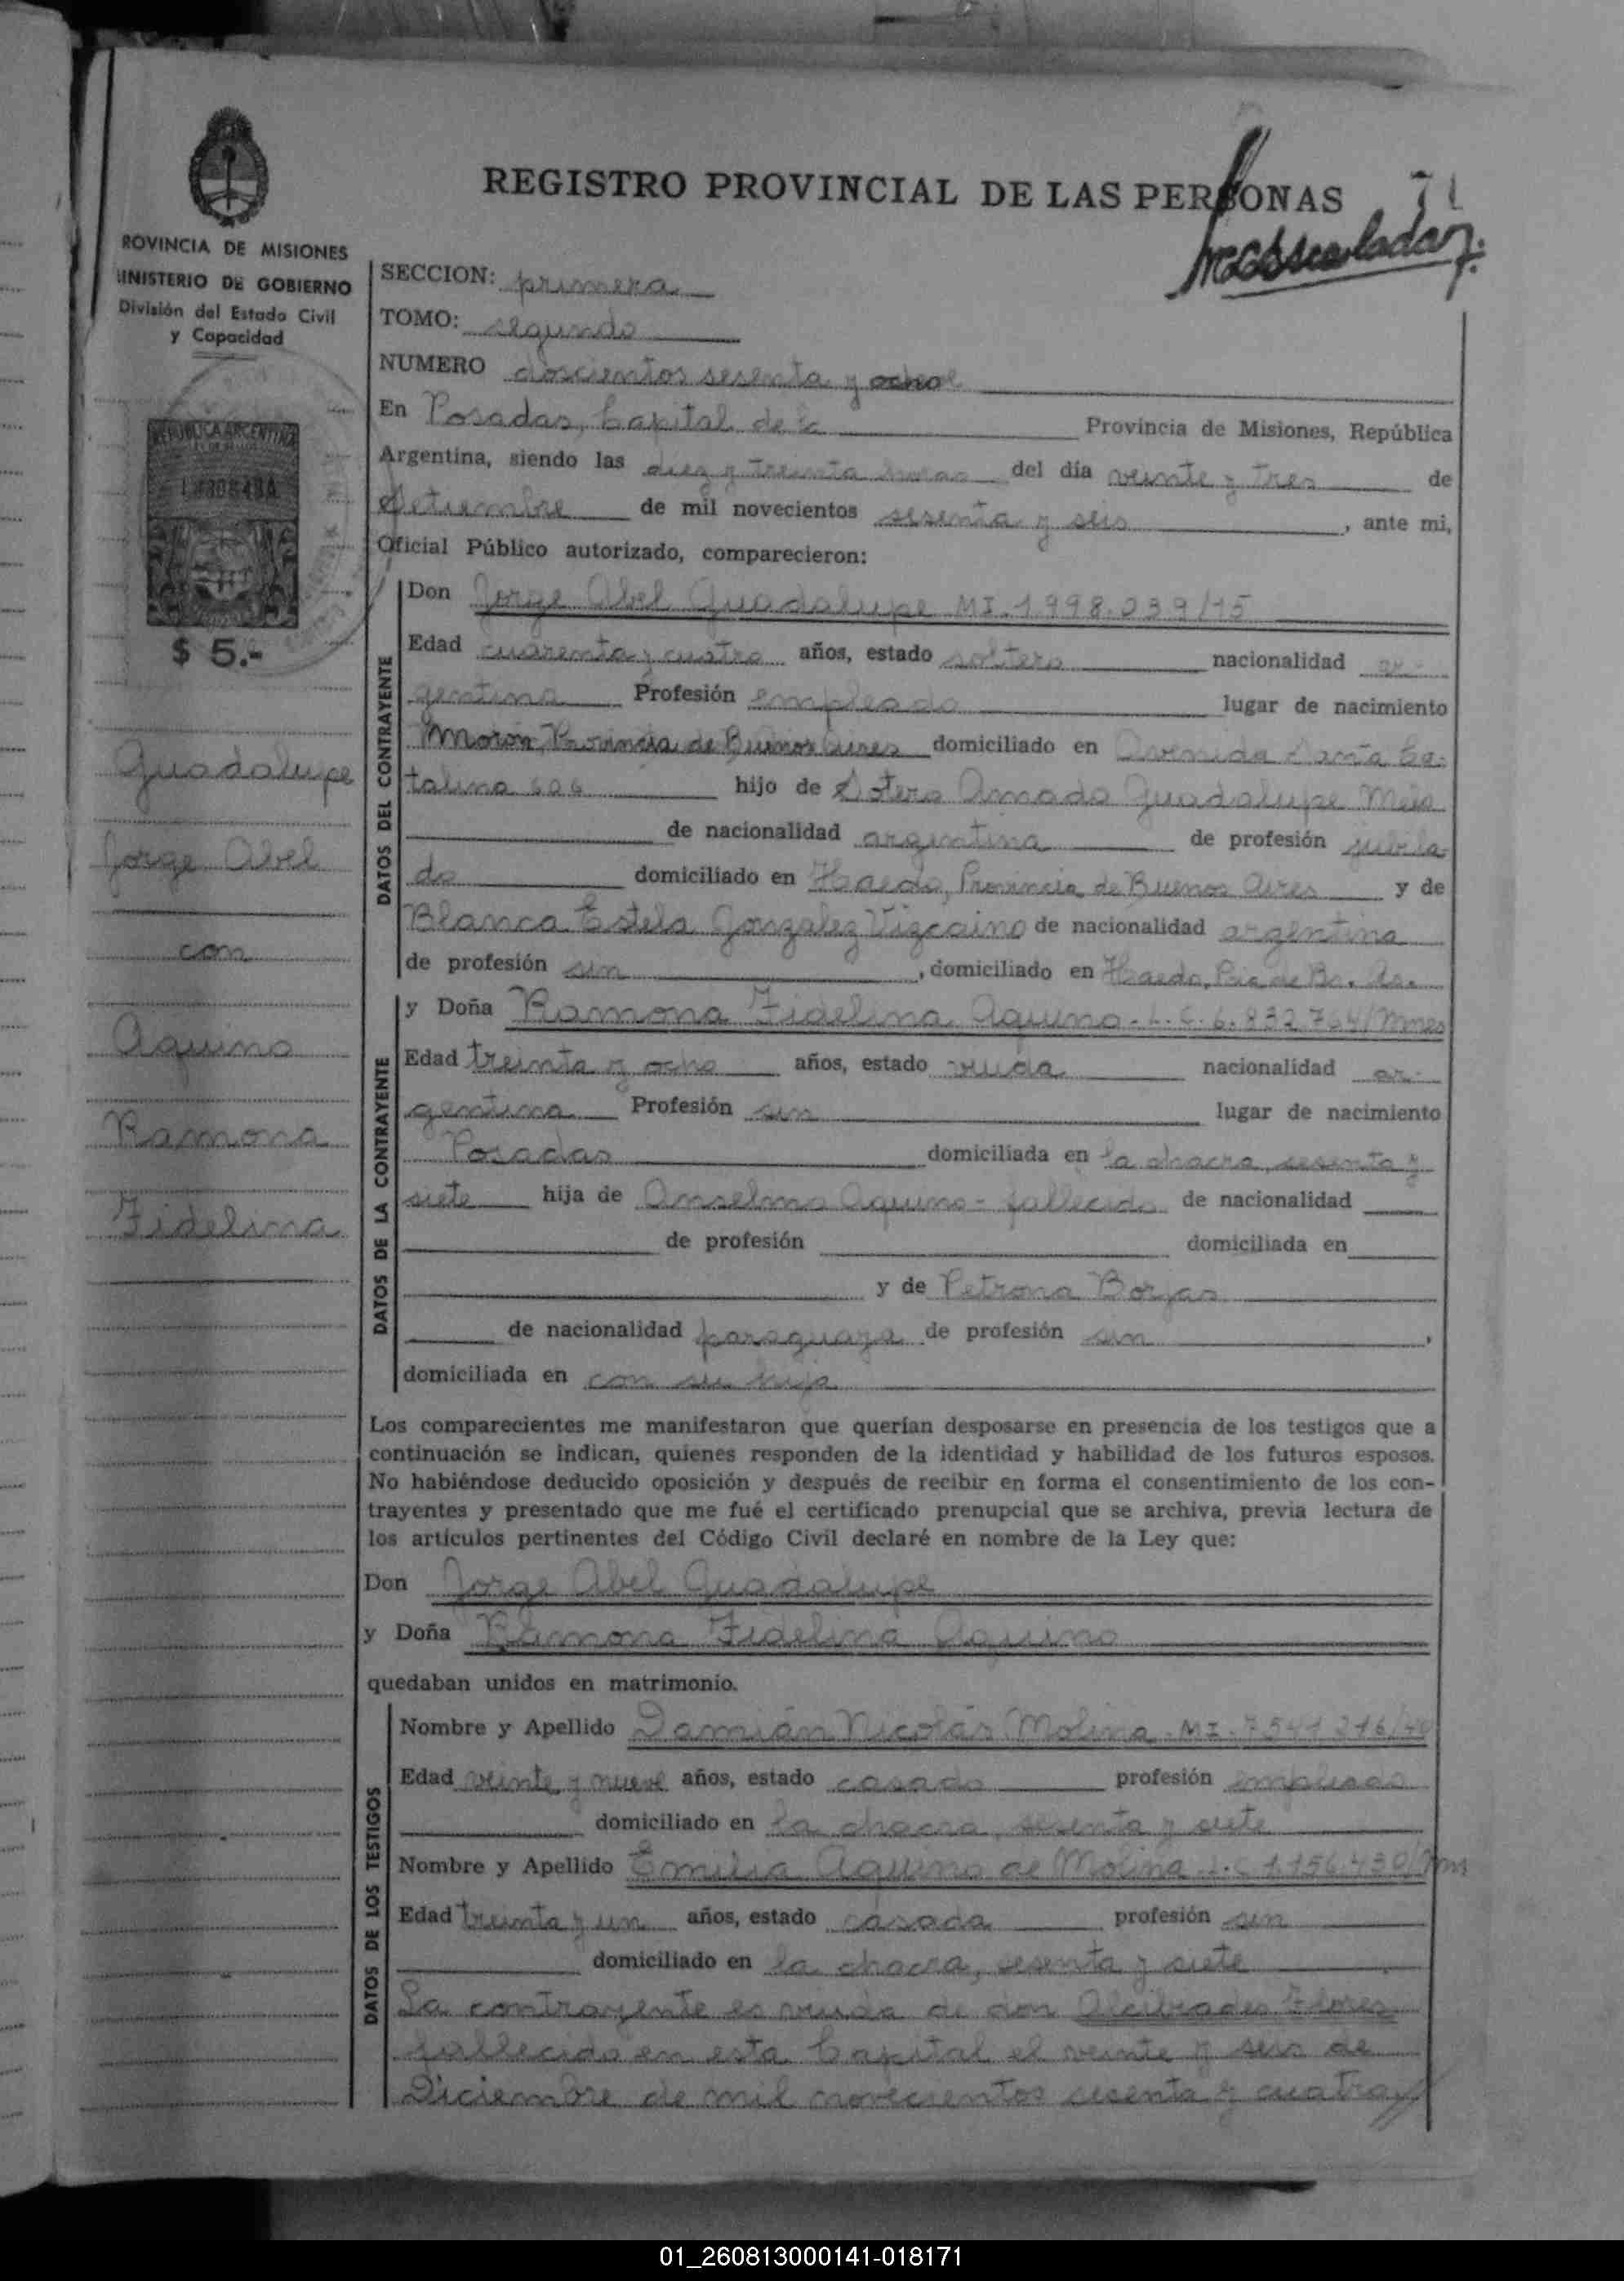 REGISTRO PROVINCIAL DE LAS PERSONAS
71
PROVINCIA DE MISIONES
MINISTERIO DE GOBIERNO
División del Estado Civil
y Capacidad
REPUBLICA ARGENTINA
$ 5.-
Guadalupe
Jorge Abel
con
Aquino
Ramona
Fidelina
SECCION: primera
TOMO: segundo
NUMERO doscientos sesenta y ocho
En Posadas, Capital de la Provincia de Misiones, República
Argentina, siendo las diez y treinta horas del día veinte y tres de
Setiembre de mil novecientos sesenta y seis, ante mi,
Oficial Público autorizado, comparecieron:
DATOS DEL CONTRAYENTE
Don Jorge Abel Guadalupe MI. 1.998.039/15
Edad cuarenta y cuatro años, estado soltero nacionalidad ar-
gentina Profesión empleado lugar de nacimiento
Morón, Provincia de Buenos Aires domiciliado en Avenida Santa Ca-
talina 606 hijo de Sotero Amado Guadalupe
de nacionalidad argentina de profesión jubila-
do domiciliado en Haedo, Provincia de Buenos Aires y de
Blanca Estela Gonzalez Vizcaino de nacionalidad argentina
de profesión sin, domiciliado en Haedo, Pcia de Bs. As.
DATOS DE LA CONTRAYENTE
y Doña Ramona Fidelina Aquino - L.C. 6.832.764/Mnes
Edad treinta y ocho años, estado viuda nacionalidad ar-
gentina Profesión sin lugar de nacimiento
Posadas domiciliada en la chacra, sesenta y
siete hija de Anselmo Aquino - fallecido de nacionalidad
de profesión domiciliada en
y de Petrona Borjas
de nacionalidad paraguaya de profesión sin,
domiciliada en con su hija
Los comparecientes me manifestaron que querían desposarse en presencia de los testigos que a
continuación se indican, quienes responden de la identidad y habilidad de los futuros esposos.
No habiéndose deducido oposición y después de recibir en forma el consentimiento de los con-
trayentes y presentado que me fué el certificado prenupcial que se archiva, previa lectura de
los artículos pertinentes del Código Civil declaré en nombre de la Ley que:
Don Jorge Abel Guadalupe
y Doña Ramona Fidelina Aquino
quedaban unidos en matrimonio.
DATOS DE LOS TESTIGOS
Nombre y Apellido Damián Nicolás Molina - MI. 7541216/40
Edad veinte y nueve años, estado casado profesión empleado
domiciliado en la chacra, sesenta y siete
Nombre y Apellido Emilia Aquino de Molina L.C 1.156.430/Mns
Edad treinta y un años, estado casada profesión sin
domiciliado en la chacra, sesenta y siete
La contrayente es viuda de don Alcibiades Flores
fallecido en esta Capital el veinte y seis de
Diciembre de mil novecientos sesenta y cuatro
01_260813000141-018171